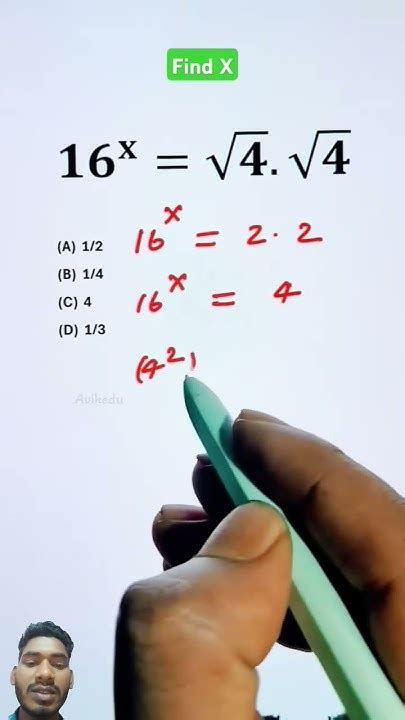 Find X
16^x = √4.√4
(A) 1/2
(B) 1/4
(C) 4
(D) 1/3
16^x = 2 · 2
16^x = 4
(4^2)
Avikedu